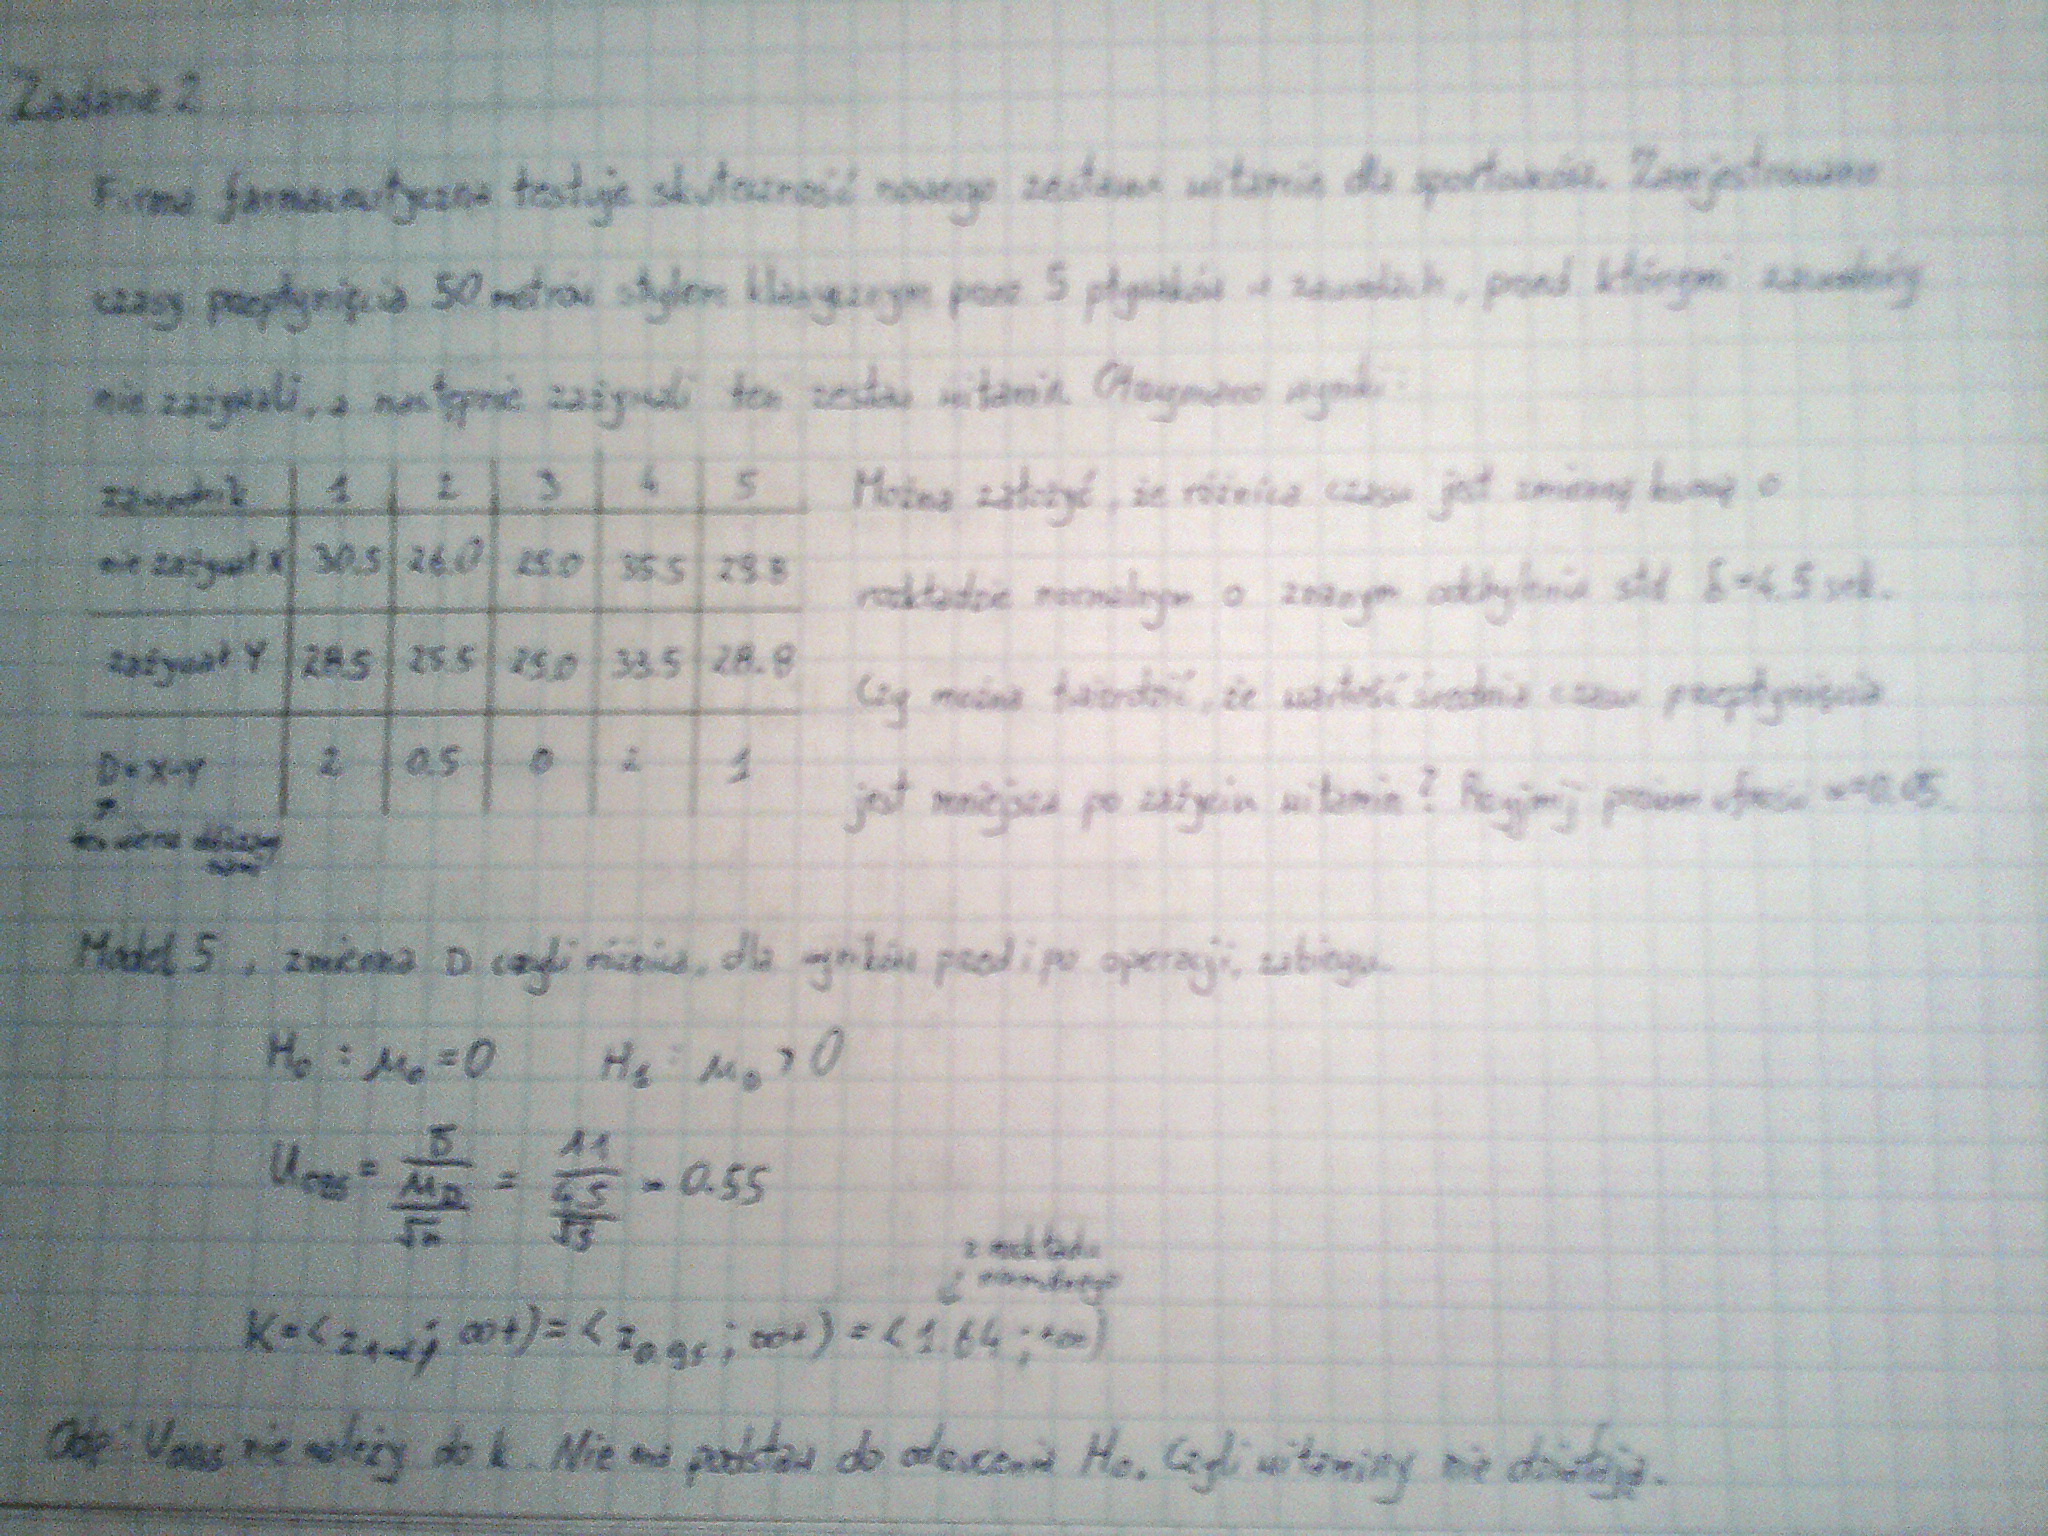 Zadanie 2
Firma farmaceutyczna testuje skuteczność nowego zestawu witamin dla sportowców. Zarejestrowano
czasy przepłynięcia 50 metrów stylem klasycznym przez 5 pływaków w zawodach, przed którymi zawodnicy
nie zażywali, a następnie zażywali ten zestaw witamin. Otrzymano wyniki:
zawodnik 1 2 3 4 5
nie zażywał X 30.5 26.0 25.0 35.5 29.8
zażywał Y 28.5 25.5 25.0 33.5 28.8
D=X-Y 2 0.5 0 2 1
ten wiersz
Można założyć, że różnica czasu jest zmienną losową o
rozkładzie normalnym o znanym odchyleniu std δ=4.5 sek.
Czy można twierdzić, że wartość średnia czasu przepłynięcia
jest mniejsza po zażyciu witamin? Przyjmij poziom ufności α=0.05.
Model 5, zmienna D czyli różnica, dla wyników przed i po operacji, zabiegu.
H₀ : μ₀ = 0 H₁ : μ₀ > 0
U = D̄ / (μD / √n) = 1.1 / (4.5 / √5) = 0.55
z rozkładu
normalnego
K = < z₁₋α ; ∞+) = < z₀.₉₅ ; ∞+) = < 1.64 ; +∞)
Odp: Uobs nie należy do K. Nie ma podstaw do odrzucenia H₀. Czyli witaminy nie działają.